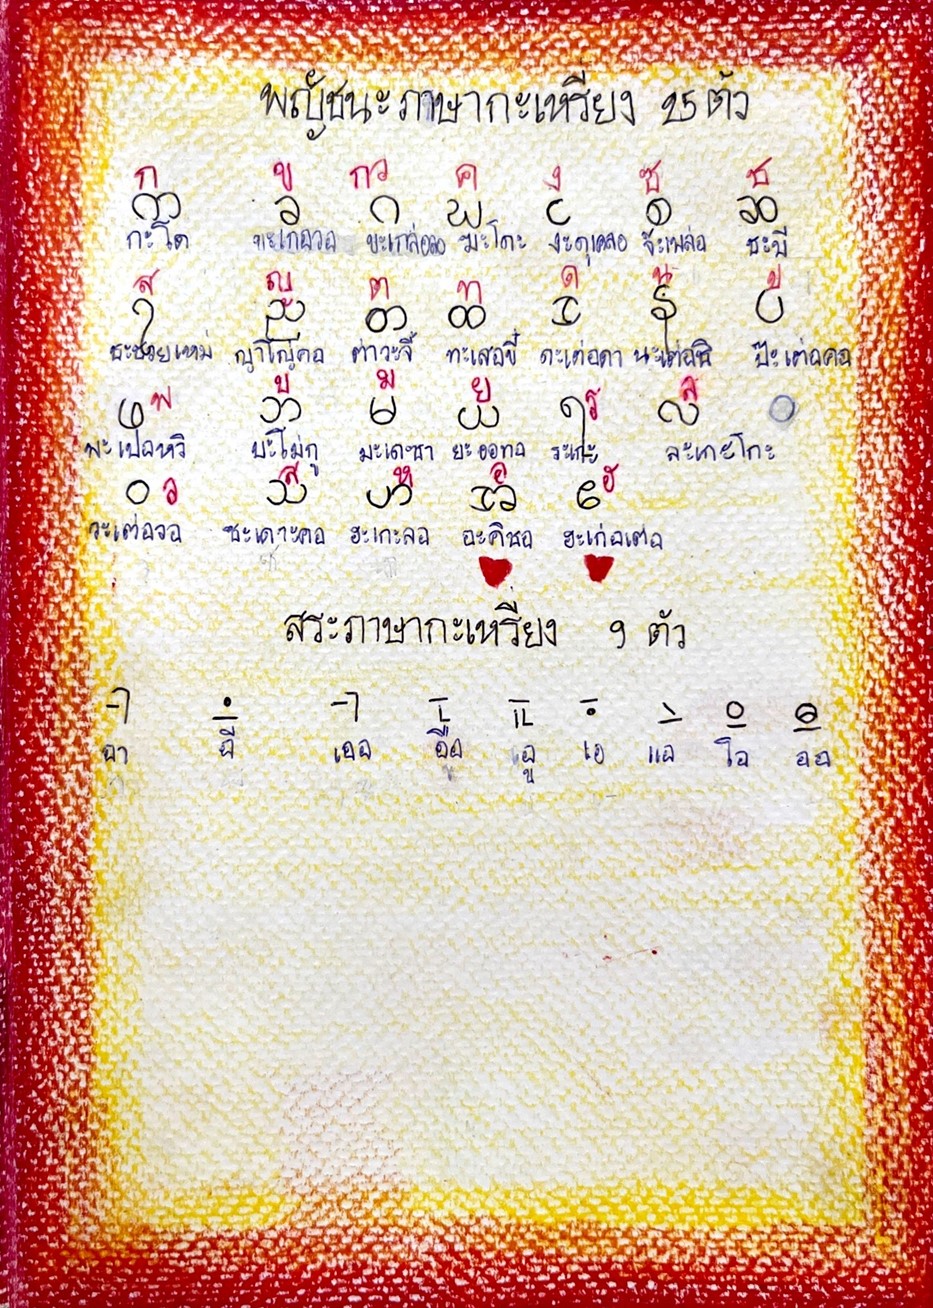 พญัชนะภาษากะเหรี่ยง 25 ตัว
ก ข กว ค ง ซ ช
က ခ ဂ ဃ င စ ဆ
กะโด ขะเกอวอ ขะเกล่อวอ ฆะโดะ งะดุเคลอ จ๊ะเพล่อ ชะบี
ส ญ ต ท ด น ป
ၡ ည တ ထ ဒ န ပ
ญาโญ่คอ ต่าวะจี้ ทะเสอขี้ ดะเต่อดา นะเต่อฉิ ป๊ะเต่อคอ
พ บ ม ย ร ล
ဖ ဘ မ ယ ရ လ
พะเปอหวิ บะโม่กู มะเดะชา ยะออทอ ระเกะ ละเกะโกะ
ว ส ห อ ฮ
ဝ သ ဟ အ ဧ
วะเต่อวอ ซะเดาะคอ ฮะเกะลอ อะคิชอ ฮะเก่อเต่อ
สระภาษากะเหรี่ยง 9 ตัว
อา อี เออ อือ อู เอ แอ โอ ออ